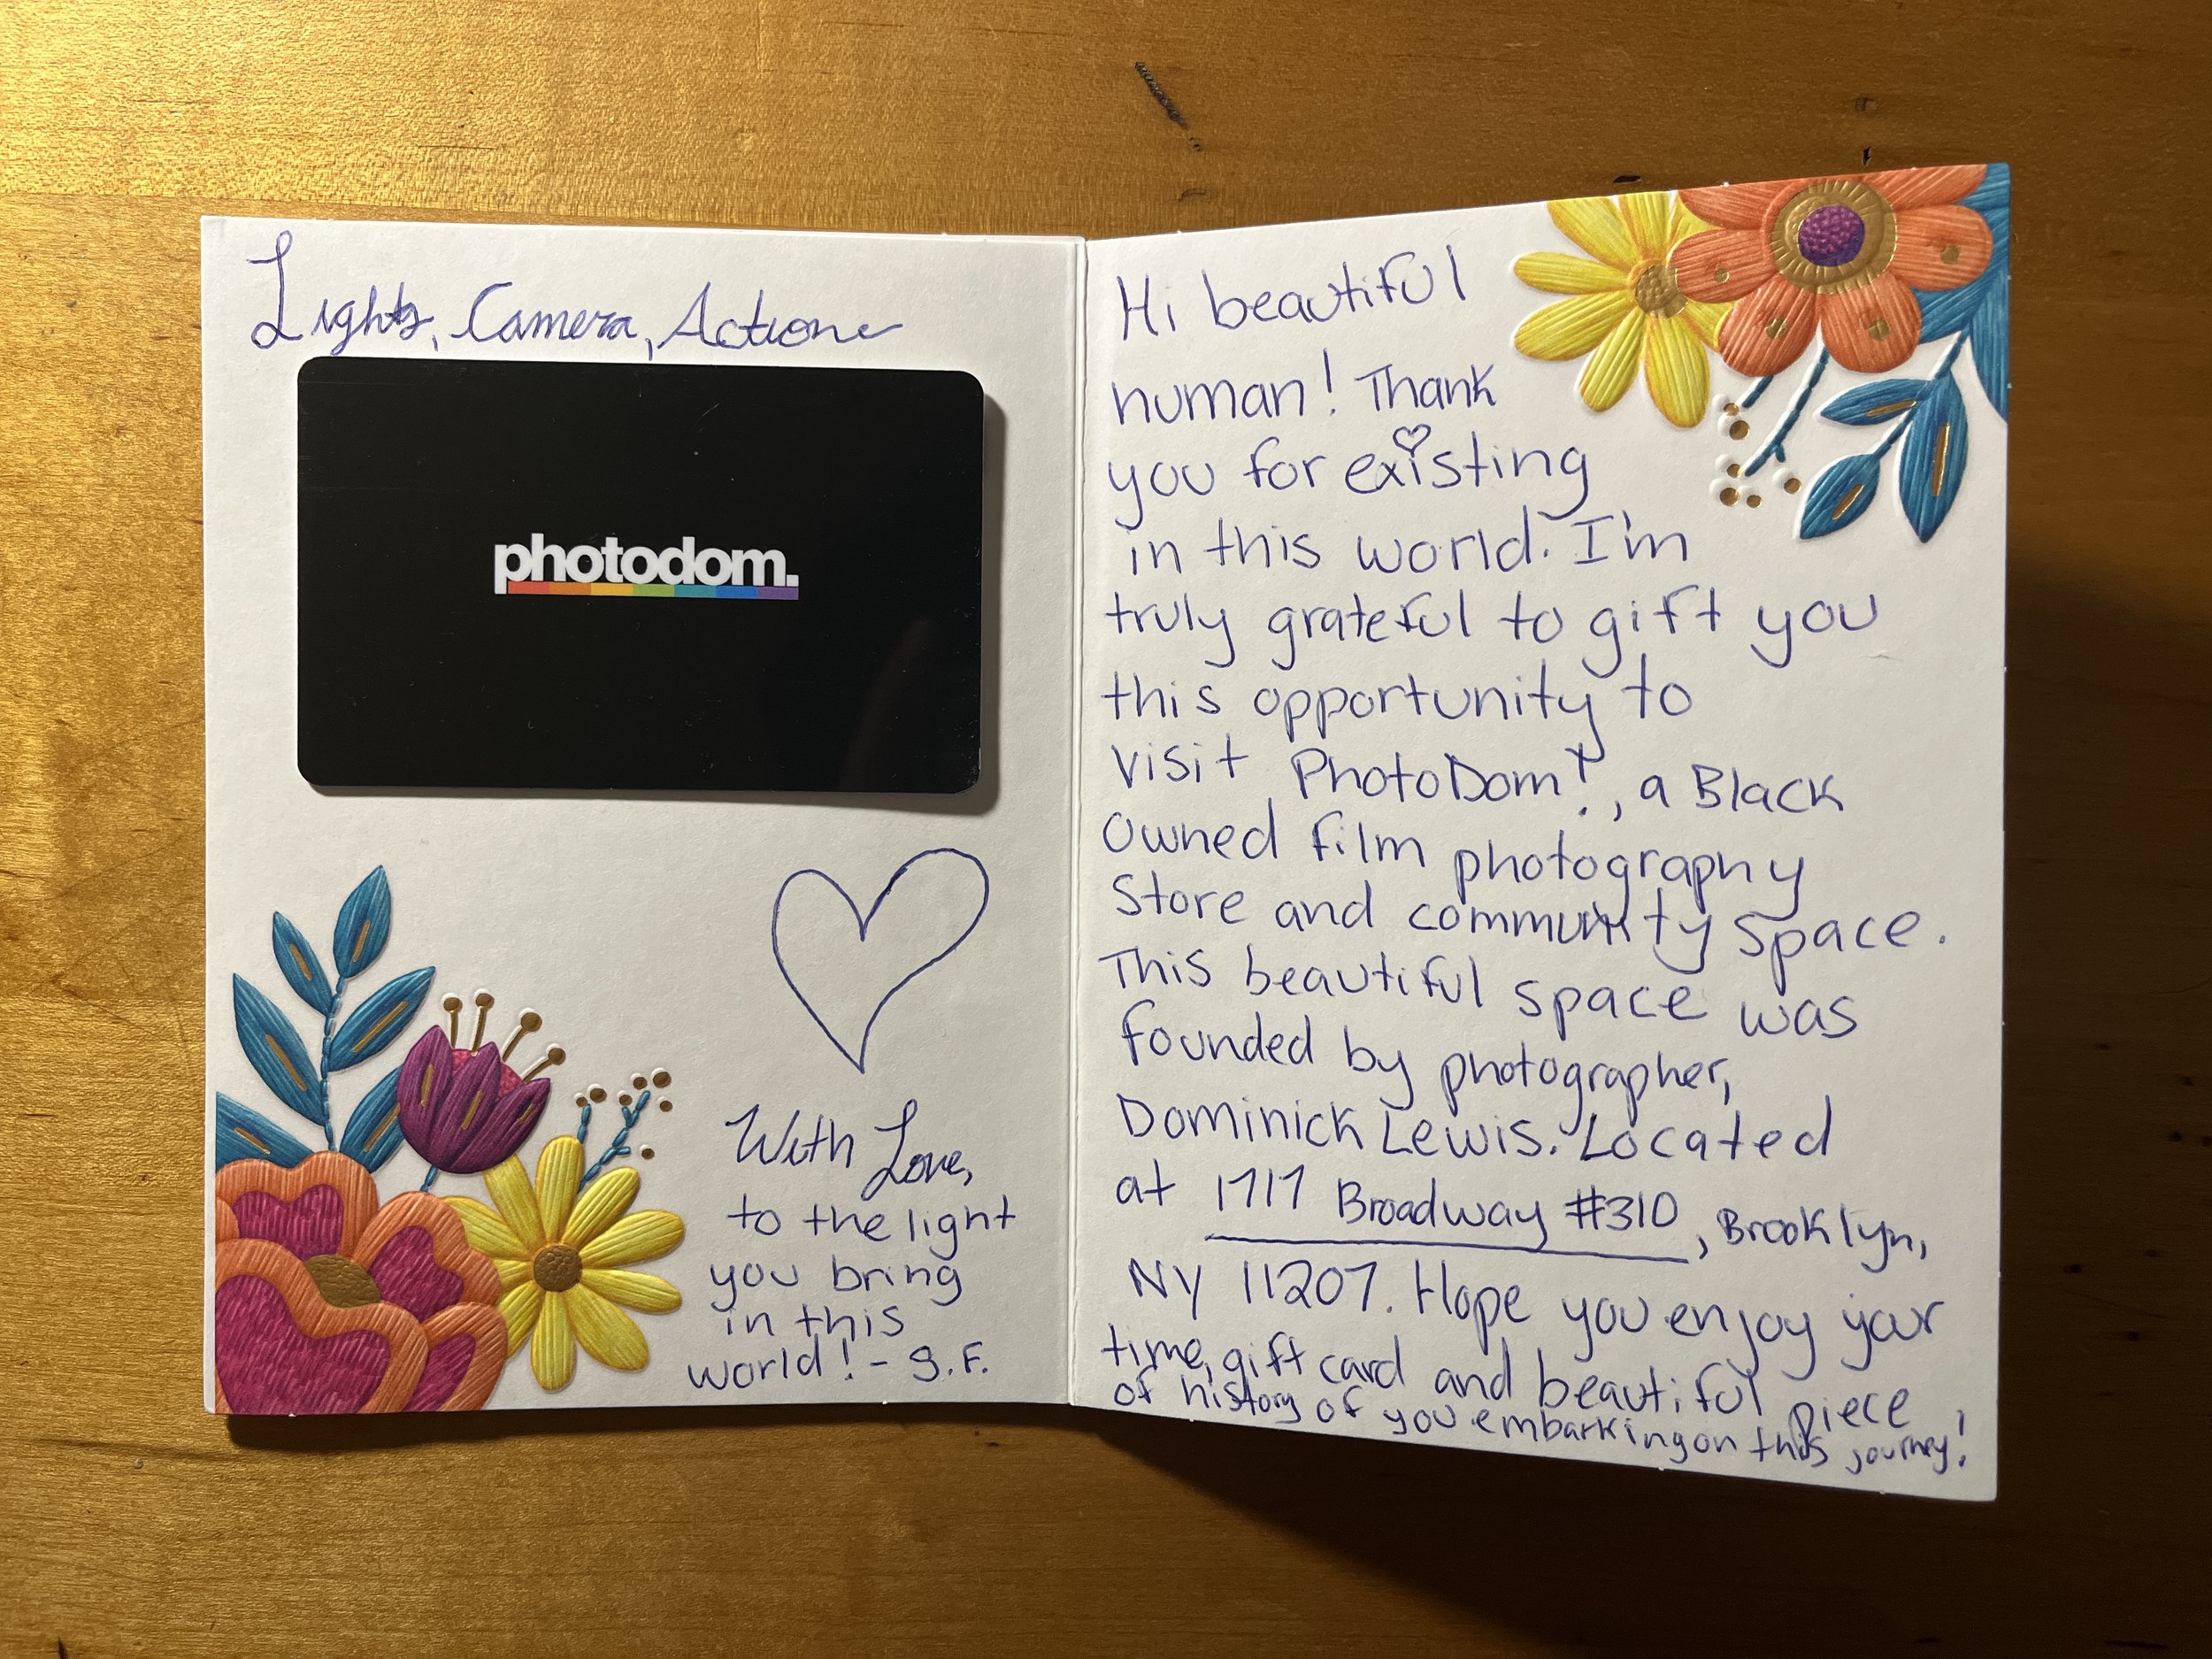 Lights, Camera, Action
photodom.
With Love,
to the light
you bring
in this
world! - S.F.
Hi beautiful
human! Thank
you for existing
in this world. I'm
truly grateful to gift you
this opportunity to
visit PhotoDom!, a Black
owned film photography
Store and community space.
This beautiful space was
founded by photographer,
Dominick Lewis. Located
at 1717 Broadway #310, Brooklyn,
NY 11207. Hope you enjoy your
time, gift card and beautiful piece
of history of you embarking on this journey!